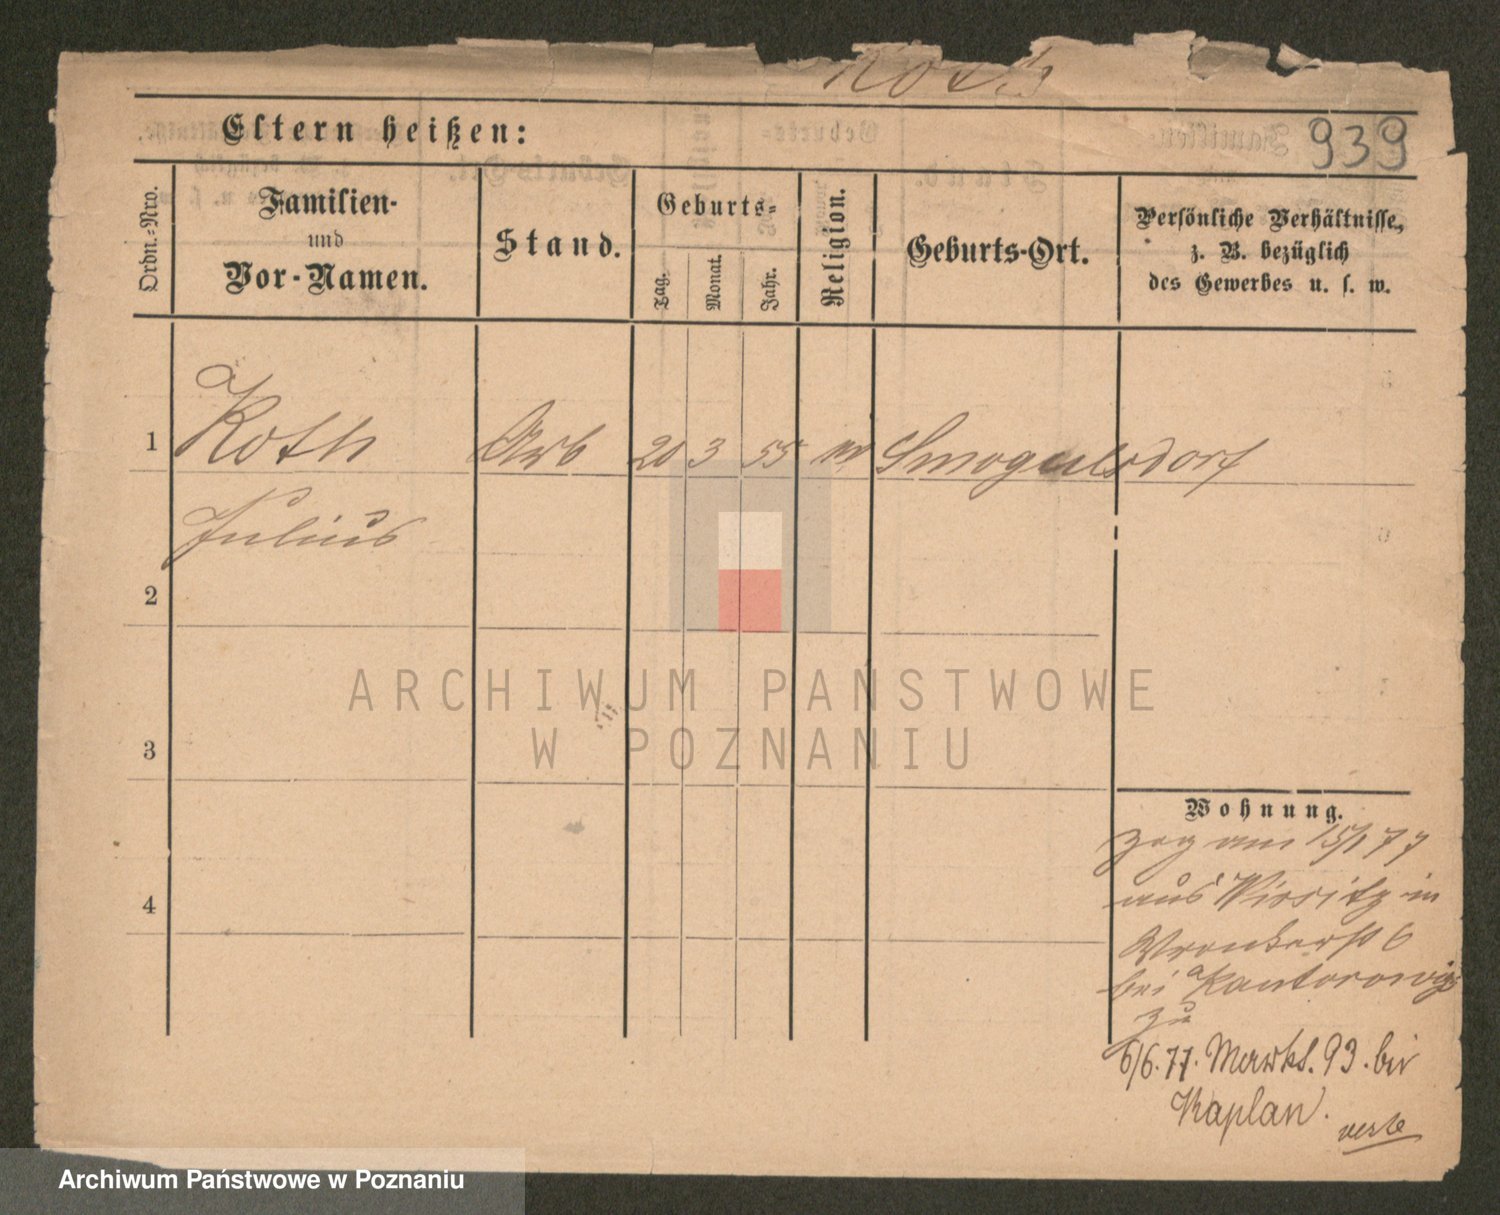 Roth
Eltern heißen:
939
Ordn.-Nro.
Familien-
und
Vor-Namen.
Stand.
Geburts-
Tag.
Monat.
Jahr.
Religion.
Geburts-Ort.
Persönliche Verhältnisse,
z. B. bezüglich
des Gewerbes u. s. w.
1 Roth Arb 20 3 55 Smogulsdorf
Julius
2
3
4
Wohnung.
zog am 15/1 77
aus Wirsitz in
Wronkerst 6
bei Kantorowicz
zu
6/6.77. Markt. 93. bei
Kaplan.
verte
ARCHIWUM PAŃSTWOWE
W POZNANIU
Archiwum Państwowe w Poznaniu